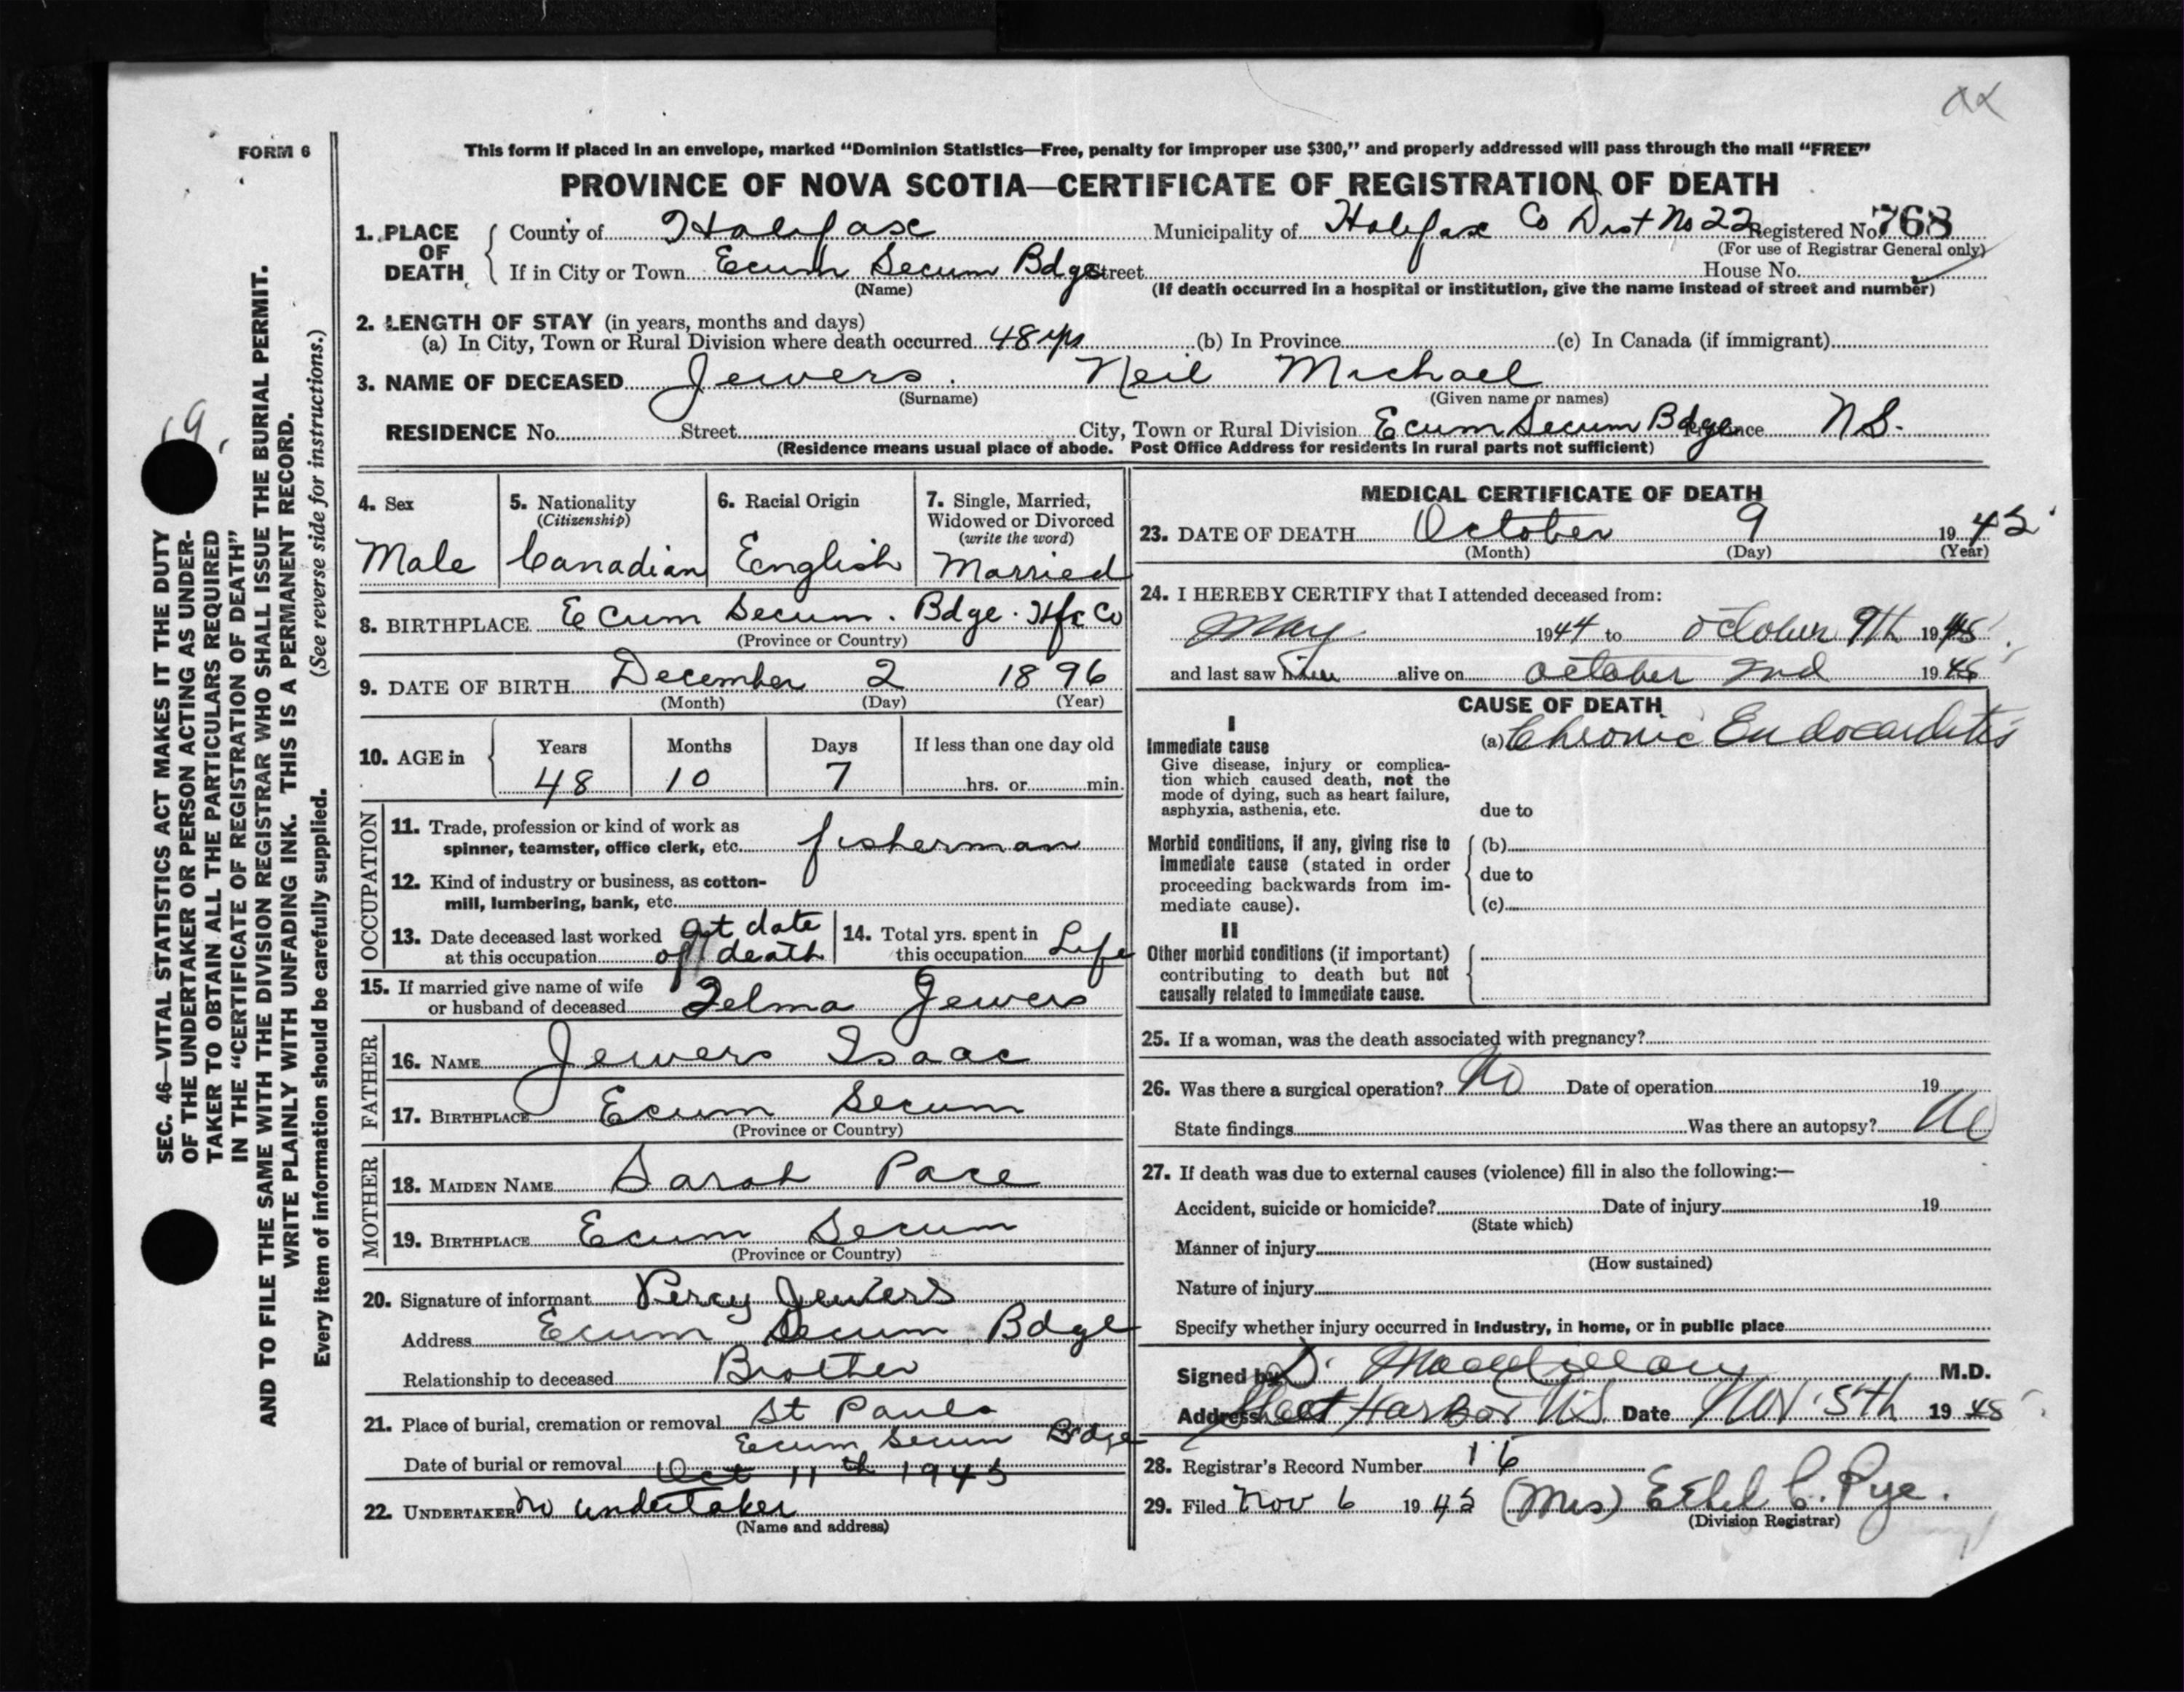 FORM 6
This form if placed in an envelope, marked “Dominion Statistics—Free, penalty for improper use $300,” and properly addressed will pass through the mail “FREE”
PROVINCE OF NOVA SCOTIA—CERTIFICATE OF REGISTRATION OF DEATH
1. PLACE OF DEATH County of Halifax Municipality of Halifax Co Dist No 22 Registered No. 768
(For use of Registrar General only)
If in City or Town Ecum Secum Bdge Street House No.
(Name) (If death occurred in a hospital or institution, give the name instead of street and number)
2. LENGTH OF STAY (in years, months and days)
(a) In City, Town or Rural Division where death occurred 48 yrs (b) In Province (c) In Canada (if immigrant)
3. NAME OF DECEASED Jewers. Neil Michael
(Surname) (Given name or names)
RESIDENCE No. Street City, Town or Rural Division Ecum Secum Bdge Province N S.
(Residence means usual place of abode. Post Office Address for residents in rural parts not sufficient)
4. Sex
Male
5. Nationality
(Citizenship)
Canadian
6. Racial Origin
English
7. Single, Married,
Widowed or Divorced
(write the word)
Married
8. BIRTHPLACE Ecum Secum. Bdge. Hfx Co
(Province or Country)
9. DATE OF BIRTH December 2 1896
(Month) (Day) (Year)
10. AGE in Years Months Days If less than one day old
48 10 7 hrs. or min.
OCCUPATION
11. Trade, profession or kind of work as
spinner, teamster, office clerk, etc. fisherman
12. Kind of industry or business, as cotton-
mill, lumbering, bank, etc.
13. Date deceased last worked at date
at this occupation of death
14. Total yrs. spent in
this occupation Life
15. If married give name of wife
or husband of deceased Jewers
FATHER
16. NAME Jewers Isaac
17. BIRTHPLACE Ecum Secum
(Province or Country)
MOTHER
18. MAIDEN NAME Sarah Pace
19. BIRTHPLACE Ecum Secum
(Province or Country)
20. Signature of informant Percy Jewers
Address Ecum Secum Bdge
Relationship to deceased Brother
21. Place of burial, cremation or removal St Pauls
Ecum Secum Bdge
Date of burial or removal Oct 11th 1945
22. UNDERTAKER No undertaker
(Name and address)
MEDICAL CERTIFICATE OF DEATH
23. DATE OF DEATH October 9 1945
(Month) (Day) (Year)
24. I HEREBY CERTIFY that I attended deceased from:
May 1944 to October 9th 1945
and last saw him alive on October 2nd 1945
CAUSE OF DEATH
I
Immediate cause
Give disease, injury or complica-
tion which caused death, not the
mode of dying, such as heart failure,
asphyxia, asthenia, etc.
(a) Chronic Endocarditis
due to
Morbid conditions, if any, giving rise to
immediate cause (stated in order
proceeding backwards from im-
mediate cause).
(b)
due to
(c)
II
Other morbid conditions (if important)
contributing to death but not
causally related to immediate cause.
25. If a woman, was the death associated with pregnancy?
26. Was there a surgical operation? No Date of operation 19
State findings Was there an autopsy? No
27. If death was due to external causes (violence) fill in also the following:—
Accident, suicide or homicide? Date of injury 19
(State which)
Manner of injury
(How sustained)
Nature of injury
Specify whether injury occurred in industry, in home, or in public place
Signed by D. M.D.
Address Sheet Harbor N.S. Date Nov 5th 1945
28. Registrar's Record Number 16
29. Filed Nov 6 1945 (Mrs) Ethel C. Pye.
(Division Registrar)
SEC. 46—VITAL STATISTICS ACT MAKES IT THE DUTY
OF THE UNDERTAKER OR PERSON ACTING AS UNDER-
TAKER TO OBTAIN ALL THE PARTICULARS REQUIRED
IN THE “CERTIFICATE OF REGISTRATION OF DEATH”
AND TO FILE THE SAME WITH THE DIVISION REGISTRAR WHO SHALL ISSUE THE BURIAL PERMIT.
WRITE PLAINLY WITH UNFADING INK. THIS IS A PERMANENT RECORD.
Every item of information should be carefully supplied. (See reverse side for instructions.)